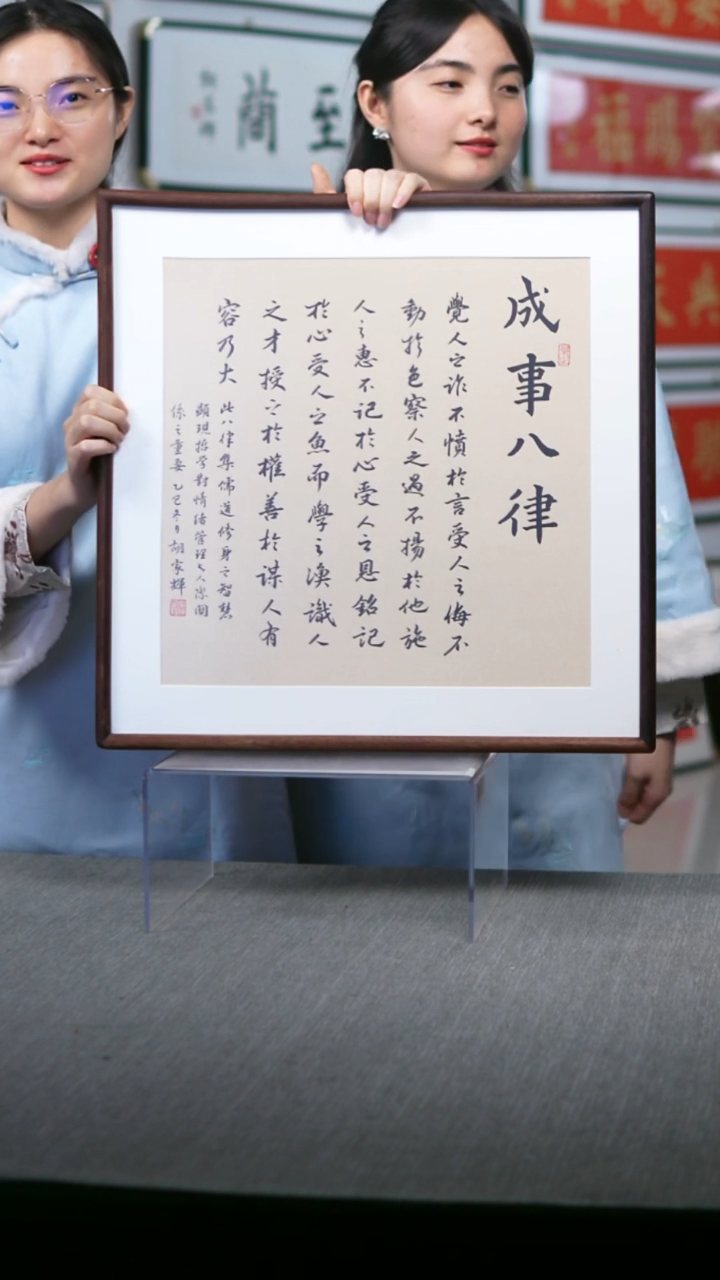 成事八律
覺人之詐不憤於言受人之侮不
動於色察人之過不揚於他施
人之惠不記於心受人之恩銘記
於心受人之魚而學之漁識人
之才授之於權善於謀人有
容乃大
此八律集儒道修身之智慧
顯現哲學對情緒管理與人際關
係之重要乙巳冬月胡家輝
至
蘭
福